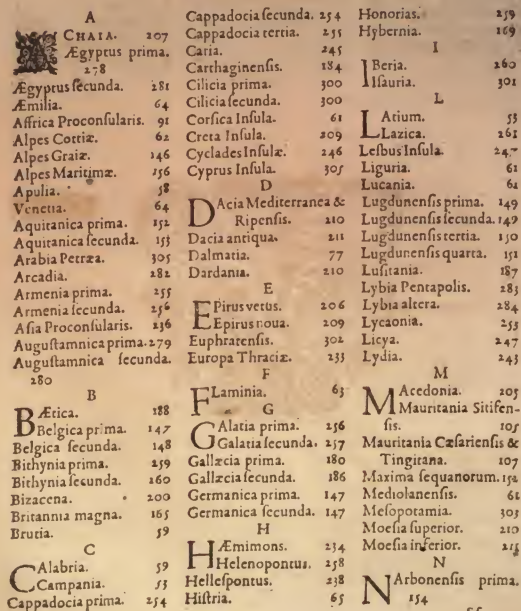 A
ACHAIA. 207
Ægyptus prima.
278
Ægyptus ſecunda. 281
Æmilia. 64
Affrica Proconſularis. 91
Alpes Cottiæ. 62
Alpes Graiæ. 146
Alpes Maritimæ. 156
Apulia. 58
Venetia. 64
Aquitanica prima. 152
Aquitanica ſecunda. 153
Arabia Petræa. 305
Arcadia. 282
Armenia prima. 255
Armenia ſecunda. 256
Aſia Proconſularis. 236
Auguſtamnica prima. 279
Auguſtamnica ſecunda.
280
B
BÆtica. 188
Belgica prima. 147
Belgica ſecunda. 148
Bithynia prima. 259
Bithynia ſecunda. 260
Bizacena. 200
Britannia magna. 165
Brutia. 59
C
CAlabria. 59
Campania. 53
Cappadocia prima. 254
Cappadocia ſecunda. 254
Cappadocia tertia. 255
Caria. 245
Carthaginenſis. 184
Cilicia prima. 300
Cilicia ſecunda. 300
Corſica Inſula. 61
Creta Inſula. 209
Cyclades Inſulæ. 246
Cyprus Inſula. 305
D
DAcia Mediterranea &
Ripenſis. 210
Dacia antiqua. 211
Dalmatia. 77
Dardania. 210
E
EPirus vetus. 206
Epirus noua. 209
Euphratenſis. 302
Europa Thraciæ. 233
F
FLaminia. 63
G
GAlatia prima. 256
Galatia ſecunda. 257
Gallæcia prima. 180
Gallæcia ſecunda. 186
Germanica prima. 147
Germanica ſecunda. 147
H
HÆmimons. 234
Helenopontus. 258
Helleſpontus. 238
Hiſtria. 65
Honorias. 259
Hybernia. 169
I
IBeria. 260
Iſauria. 301
L
LAtium. 53
Lazica. 261
Leſbus Inſula. 247
Liguria. 61
Lucania. 61
Lugdunenſis prima. 149
Lugdunenſis ſecunda. 149
Lugdunenſis tertia. 150
Lugdunenſis quarta. 151
Luſitania. 187
Lybia Pentapolis. 283
Lybia altera. 284
Lycaonia. 253
Licya. 247
Lydia. 243
M
MAcedonia. 205
Mauritania Sitifen-
ſis. 105
Mauritania Cæſarienſis &
Tingitana. 107
Maxima ſequanorum. 152
Mediolanenſis. 61
Meſopotamia. 303
Moeſia ſuperior. 210
Moeſia inferior. 215
N
NArbonenſis prima.
154